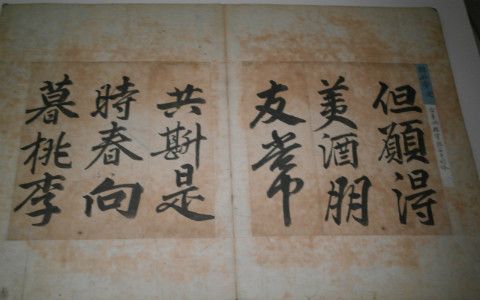 但願得
美酒朋
友常
共斟是
時春向
暮桃李